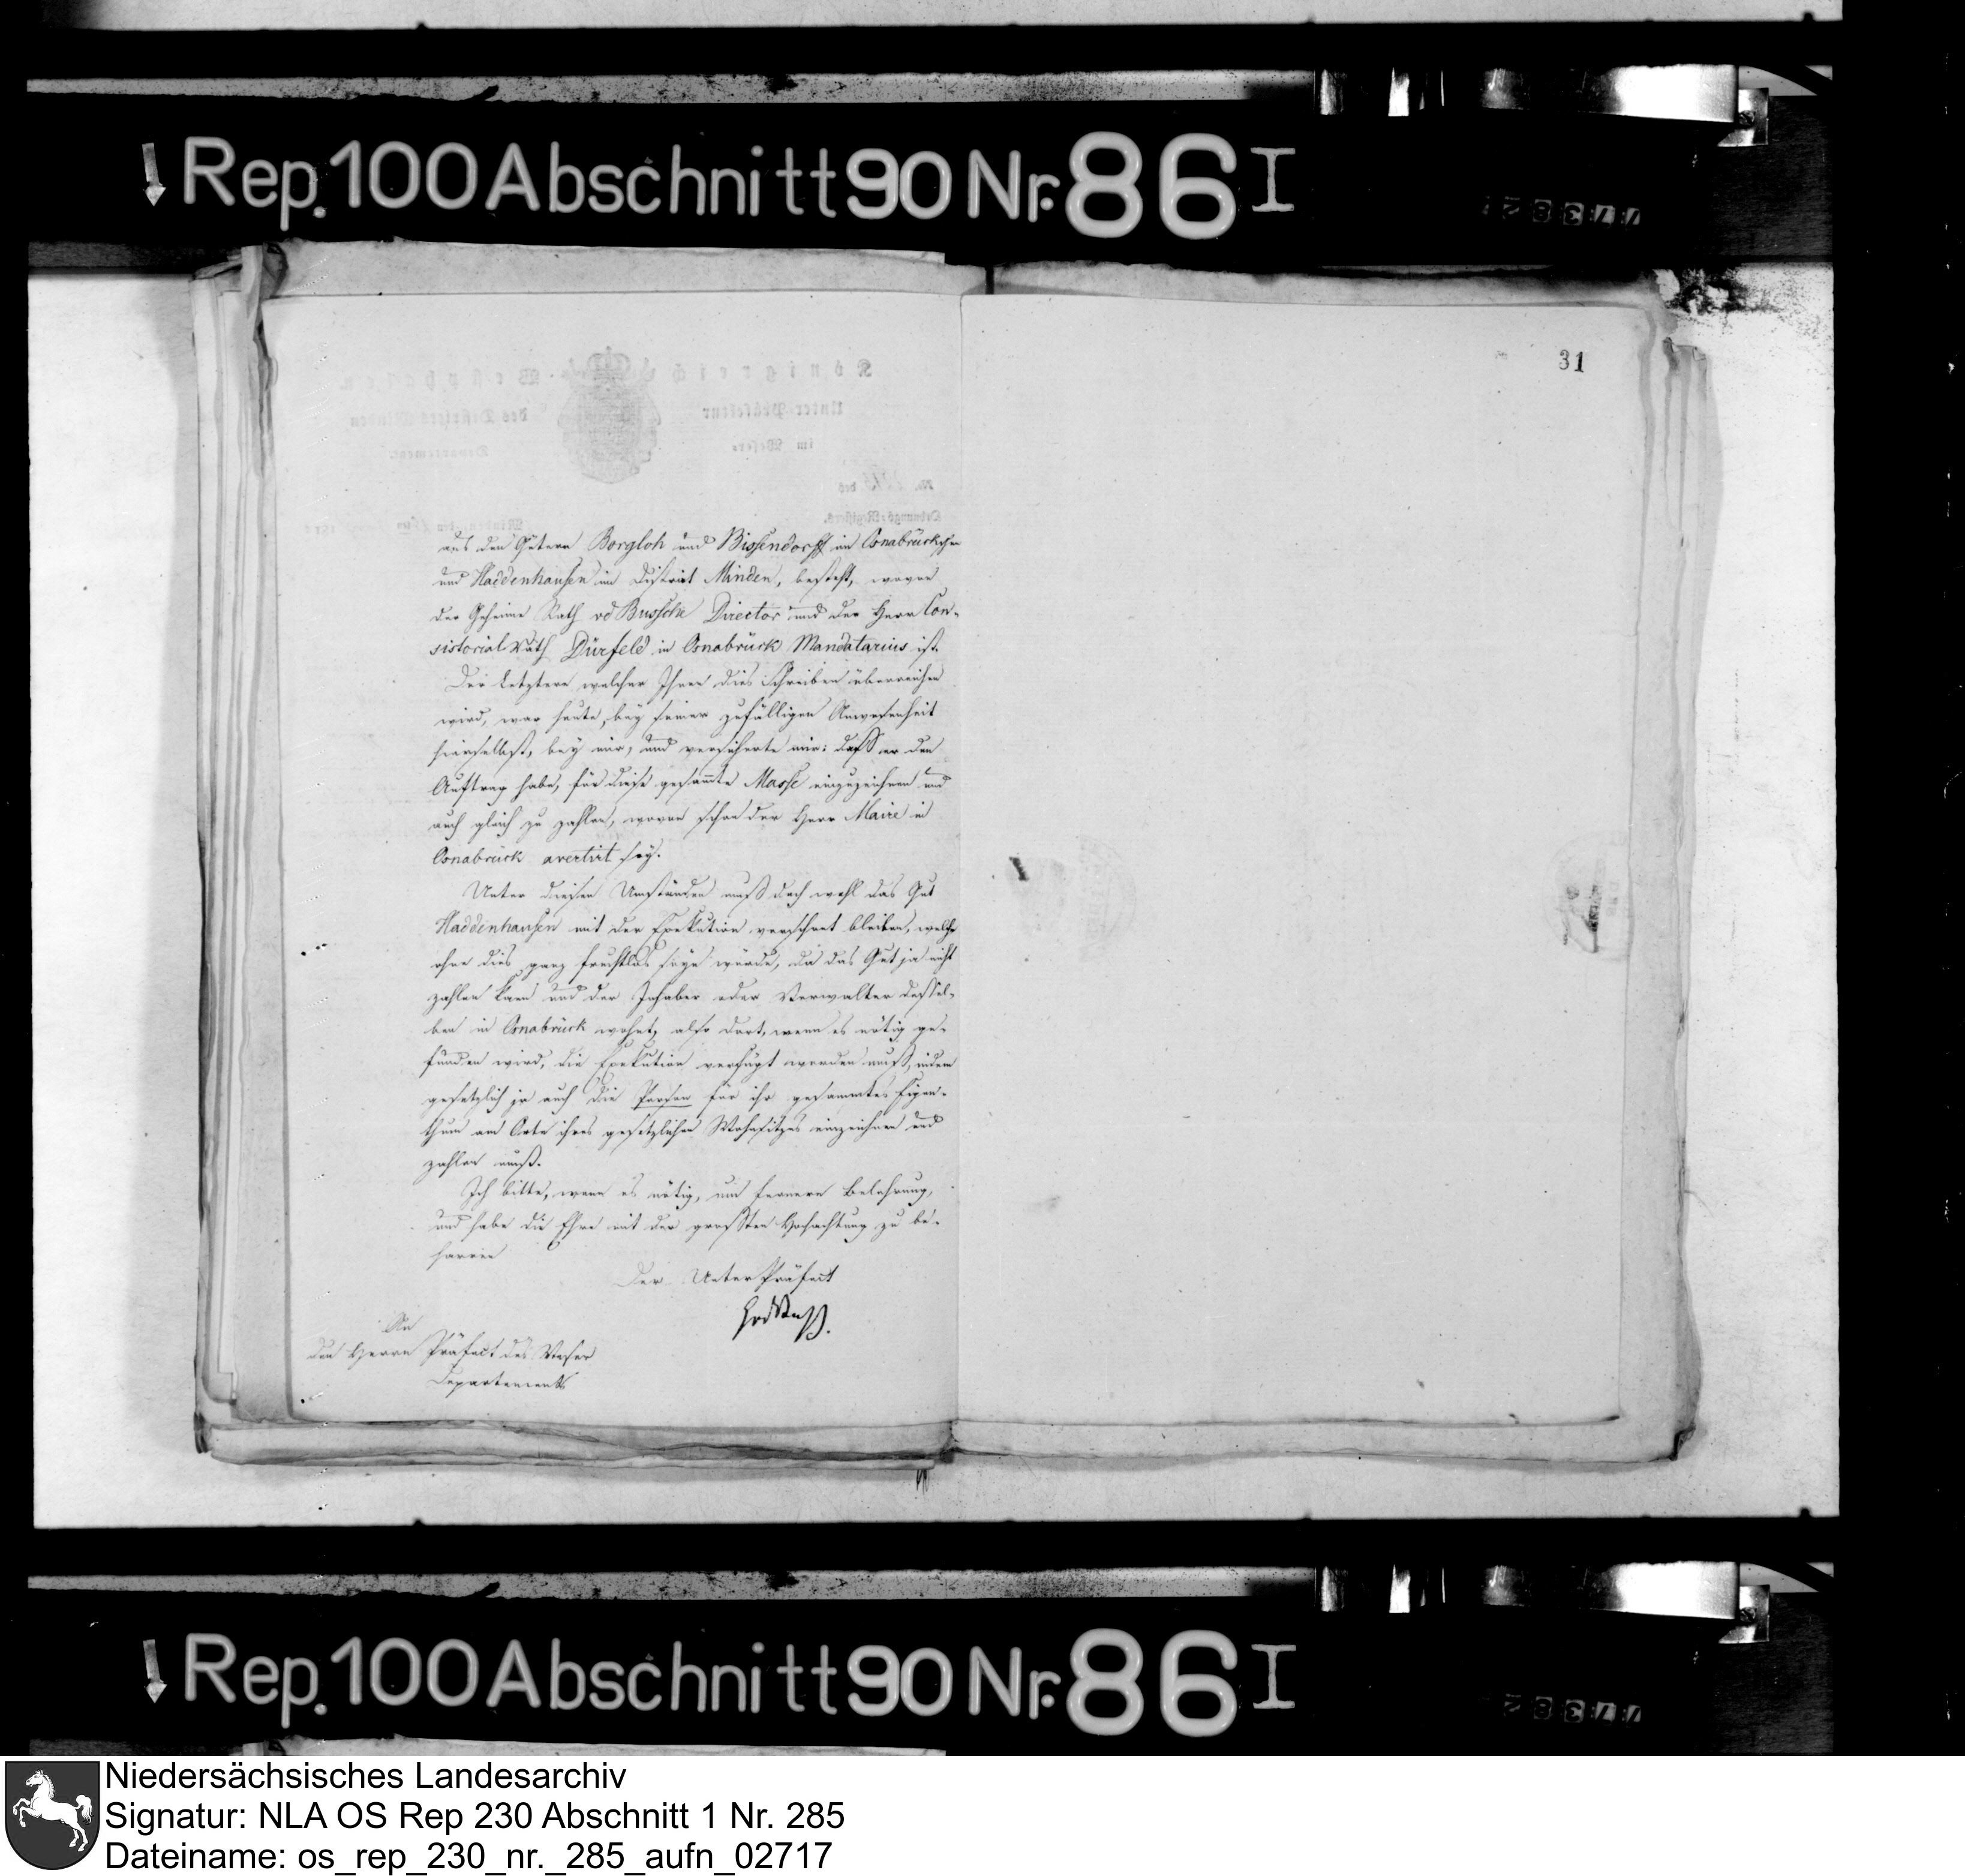 Rep. 100 Abschnitt 90 Nr. 86 I
31
aus den Gütern Borgloh und Bissendorff im Osnabrückschen
und Haddenhausen im District Minden, besteht, wovon
der Geheime Rath vd Bussche Director und der Herr Con-
sistorial-Rath Dürfeld in Osnabrück Mandatarius ist.
Der Letztere, welcher Ihnen dies Schreiben überreichen
wird, war heute, bey seiner zufälligen Anwesenheit
hierselbst, bey mir, und versicherte mir: daß er den
Auftrag habe, für diese gesammte Masse einzuzeichnen und
auch gleich zu zahlen, wovon schon der Herr Maire in
Osnabrück avertirt sey.
Unter diesen Umständen muß doch wohl das Gut
Haddenhausen mit der Exekution verschont bleiben, welche
ohne dies ganz fruchtlos seyn würde, da das Gut ja nicht
zahlen kann und der Inhaber oder Verwalter dessel-
ben in Osnabrück wohnt, also dort, wenn es nötig ge-
funden wird, die Exekution verfügt werden muß, indem
gesetzlich ja auch die Person für ihr gesammtes Eigen-
thum am Orte ihres gesetzlichen Wohnsitzes einzeichnen und
zahlen muß.
Ich bitte, wenn es nötig, um fernere Belehrung,
und habe die Ehre mit der großten Hochachtung zu be-
harren
Der UnterPräfect
An
den Herrn Präfect des Weser
Departements
Rep. 100 Abschnitt 90 Nr. 86 I
Niedersächsisches Landesarchiv
Signatur: NLA OS Rep 230 Abschnitt 1 Nr. 285
Dateiname: os_rep_230_nr._285_aufn_02717